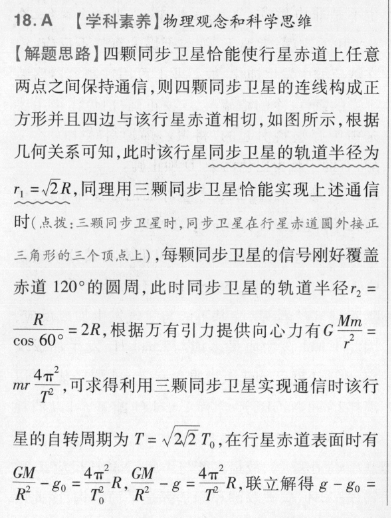 18. A 【学科素养】物理观念和科学思维
【解题思路】四颗同步卫星恰能使行星赤道上任意
两点之间保持通信,则四颗同步卫星的连线构成正
方形并且四边与该行星赤道相切,如图所示,根据
几何关系可知,此时该行星同步卫星的轨道半径为
r₁ = √2R,同理用三颗同步卫星恰能实现上述通信
时(点拨:三颗同步卫星时,同步卫星在行星赤道圆外接正
三角形的三个顶点上),每颗同步卫星的信号刚好覆盖
赤道 120°的圆周,此时同步卫星的轨道半径r₂ =
R/cos 60° = 2R,根据万有引力提供向心力有G Mm/r² =
mr 4π²/T²,可求得利用三颗同步卫星实现通信时该行
星的自转周期为 T = √(2√2) T₀,在行星赤道表面时有
GM/R² - g₀ = 4π²/T₀² R, GM/R² - g = 4π²/T² R,联立解得 g - g₀ =